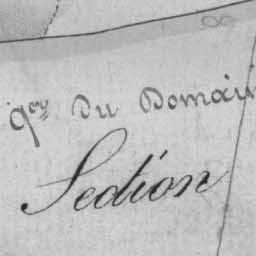 qer du Domain
Section